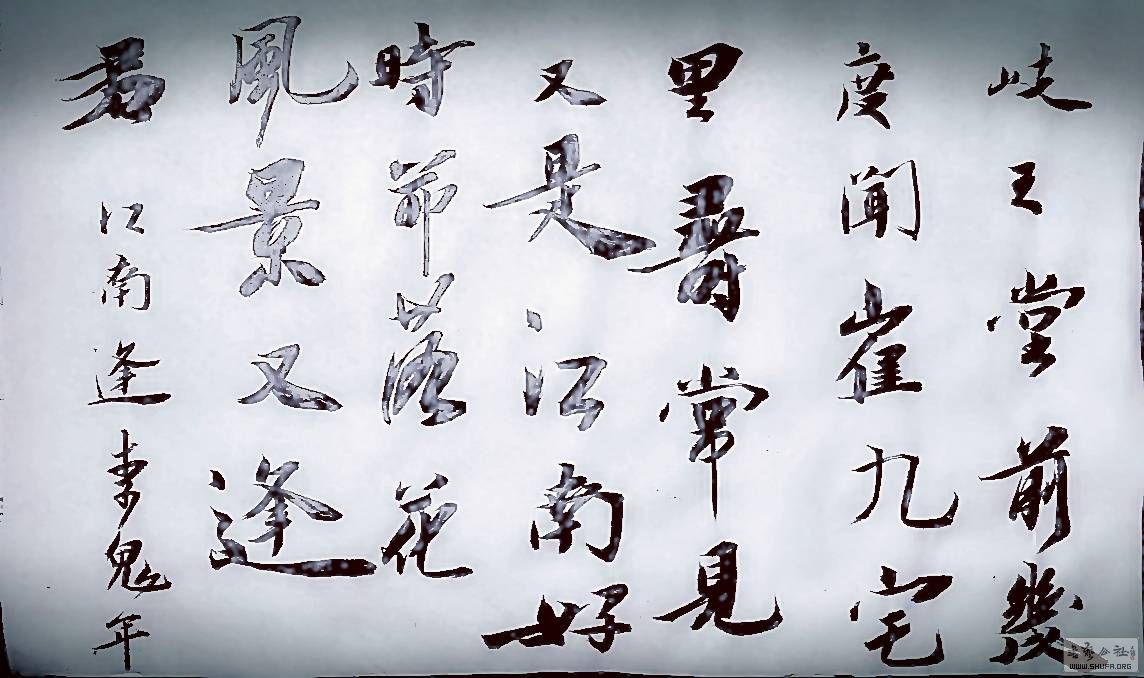 岐王堂前幾
度聞崔九宅
里尋常見
又是江南好
時節落花
風景又逢
君
江南逢李龜年
WWW.SHUFA.ORG